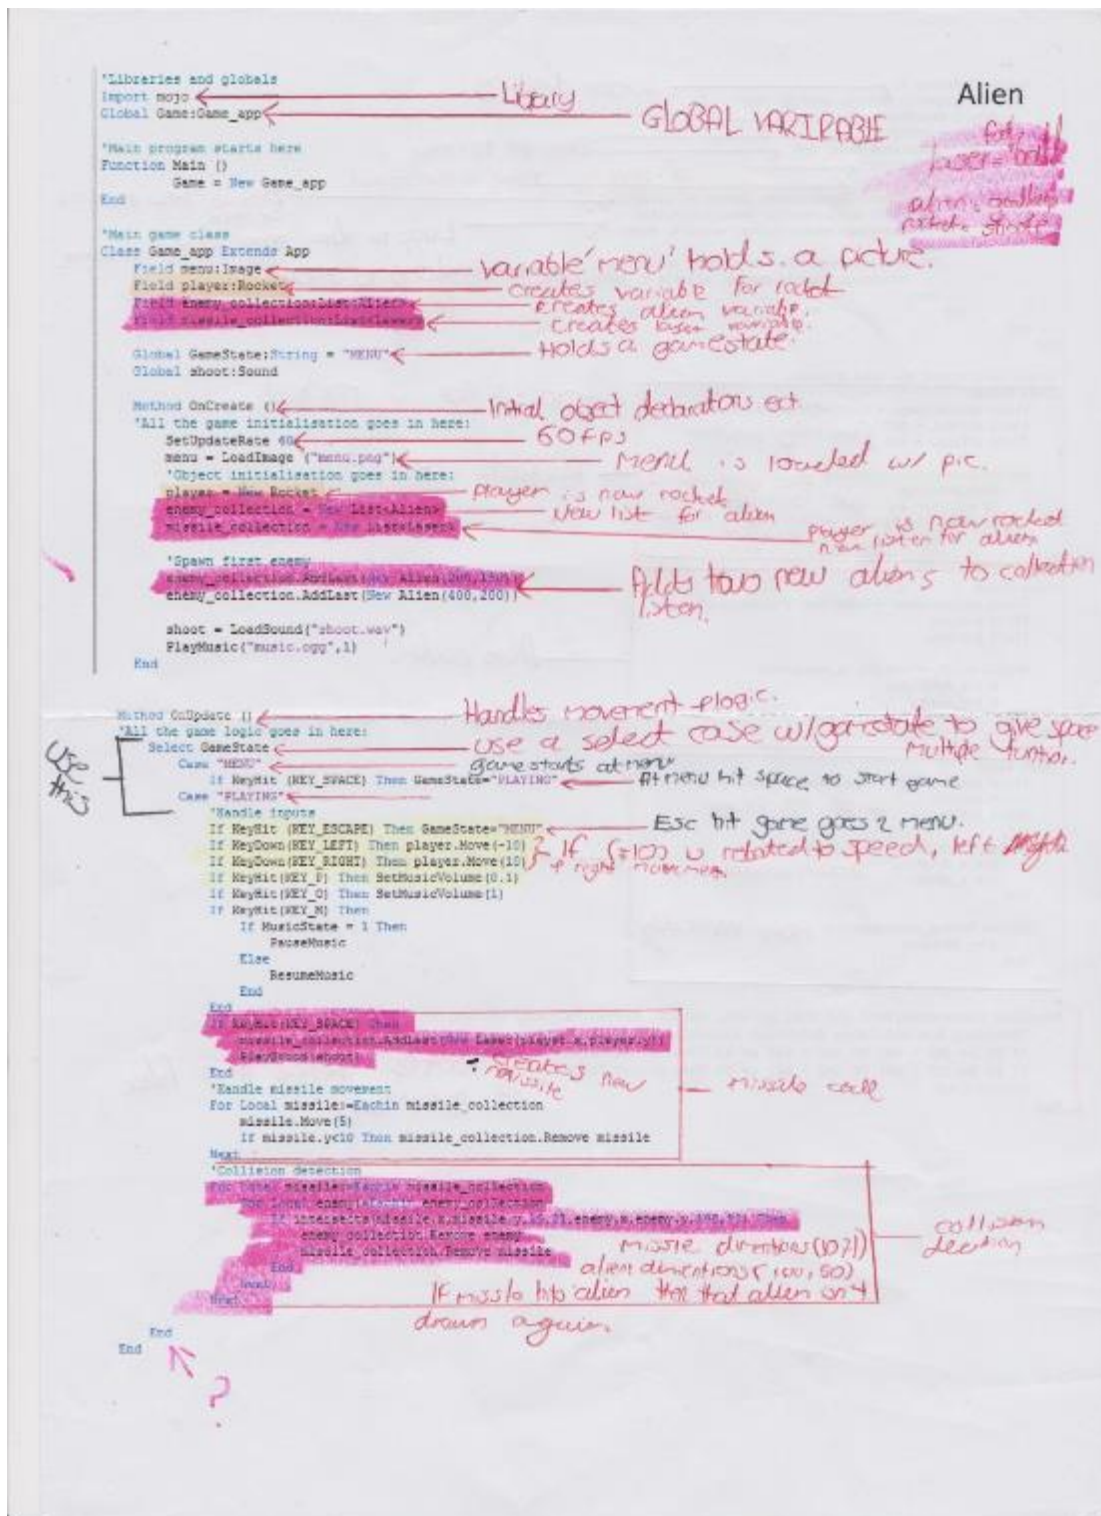 'Libraries and globals
Import mojo
Library
Global Game:Game_app
GLOBAL VARIRABLE
Alien
'Main program starts here
Function Main ()
Game = New Game_app
End
laser =
alien =
'Main game class
Class Game_app Extends App
Field menu:Image
variable 'menu' holds a picture.
Field player:Rocket
creates variable for rocket
Field enemy_collection:List<Alien>
creates alien variable.
Field missile_collection:List<Laser>
creates laser variable.
Global GameState:String = "MENU"
Holds a gamestate.
Global shoot:Sound
Method OnCreate ()
Initial object declarations ect
'All the game initialisation goes in here:
SetUpdateRate 60
60 fps
menu = LoadImage ("menu.png")
Menu is loaded w/ pic.
'Object initialisation goes in here:
player = New Rocket
player is now rocket
enemy_collection = New List<Alien>
New list for alien
missile_collection = New List<Laser>
player is now rocked
new listen for alien
'Spawn first enemy
enemy_collection.AddLast(New Alien(200,150))
Adds two new aliens to collection
listen.
enemy_collection.AddLast(New Alien(400,200))
shoot = LoadSound("shoot.wav")
PlayMusic("music.ogg",1)
End
Method OnUpdate ()
Handles movement + logic.
'All the game logic goes in here:
Use this
Select GameState
use a select case w/ gamestate to give space
multiple funtion.
Case "MENU"
game starts at menu
If KeyHit (KEY_SPACE) Then GameState="PLAYING"
At menu hit space to start game
Case "PLAYING"
'Handle inputs
If KeyHit (KEY_ESCAPE) Then GameState="MENU"
Esc hit game goes 2 menu.
If KeyDown(KEY_LEFT) Then player.Move(-10)
If KeyDown(KEY_RIGHT) Then player.Move(10)
If (±10) is related to speed, left
+ right movement
If KeyHit(KEY_P) Then SetMusicVolume(0.1)
If KeyHit(KEY_O) Then SetMusicVolume(1)
If KeyHit(KEY_M) Then
If MusicState = 1 Then
PauseMusic
Else
ResumeMusic
End
End
If KeyHit(KEY_SPACE) Then
missile_collection.AddLast(New Laser(player.x,player.y))
PlaySound(shoot)
End
creates new
missile
'Handle missile movement
missile code
For Local missile:=Eachin missile_collection
missile.Move(5)
If missile.y<10 Then missile_collection.Remove missile
Next
'Collision detection
For Local missile:=Eachin missile_collection
For Local enemy:=Eachin enemy_collection
If intersects(missile.x,missile.y,enemy.x,enemy.y) Then
enemy_collection.Remove enemy
missile_collection.Remove missile
End
Next
Next
collision
dection
missle dimentions
alien dimentions (100, 50)
If missle hits alien that alien
drawn again.
End
End
?